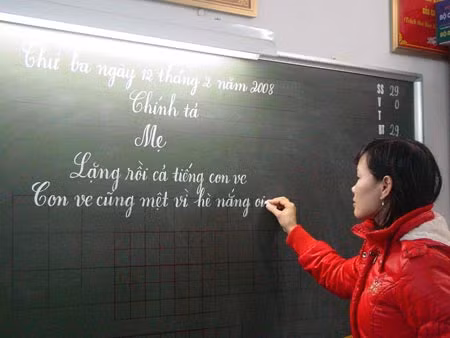 Thứ ba ngày 12 tháng 2 năm 2008
Chính tả
Mẹ
Lặng rồi cả tiếng con ve
Con ve cũng mệt vì hè nắng oi
SS 29
V 0
T
29